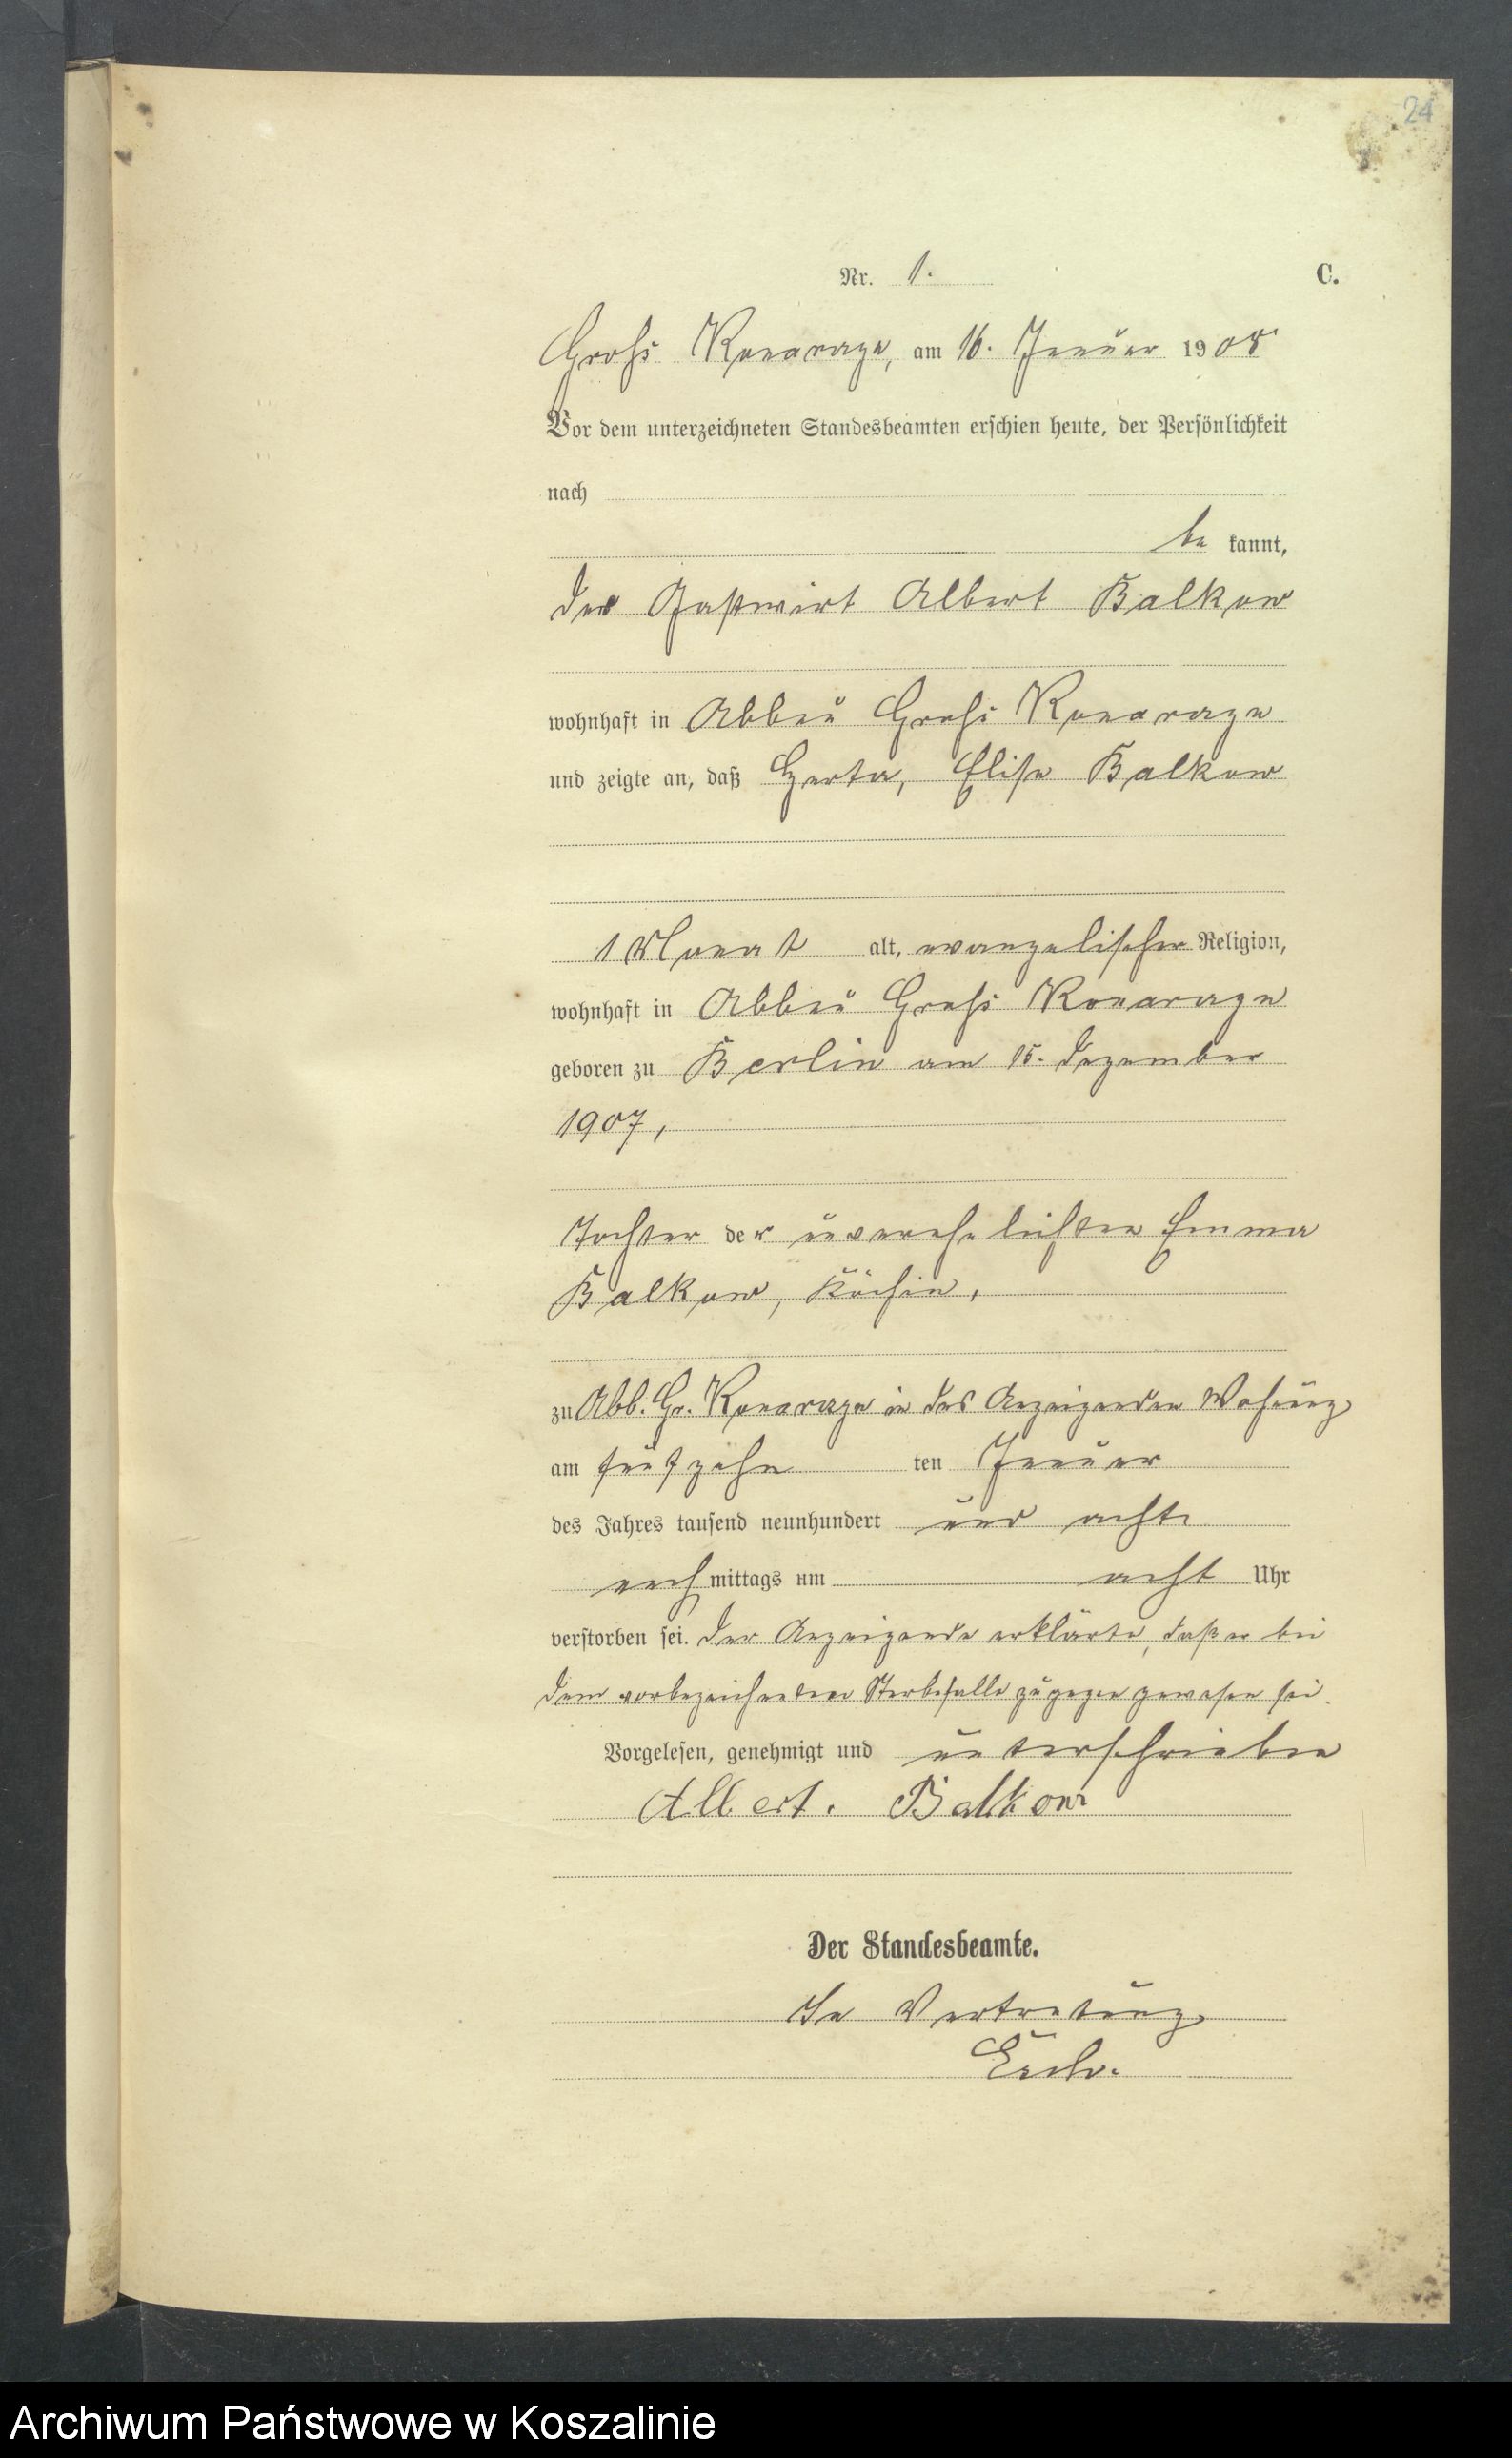 24
Nr. 1. C.
Groß Konarzyn, am 16. Januar 1908
Vor dem unterzeichneten Standesbeamten erschien heute, der Persönlichkeit
nach
be kannt,
der Gastwirt Albert Balkow
wohnhaft in Abbau Groß
und zeigte an, daß Gerta, Elise Balkow
1 Monat alt, evangelischer Religion,
wohnhaft in Abbau Groß
geboren zu Berlin am 15. Dezember
1907,
Tochter der unverehelichten Emma
Balkow, Köchin,
zu Abb. Gr. in des Anzeigenden Wohnung
am fünfzehn ten Januar
des Jahres tausend neunhundert und acht
nach mittags um acht Uhr
verstorben sei. Der Anzeigende erklärte, daß er bei
dem vorbezeichneten Sterbefalle zugegen gewesen sei.
Vorgelesen, genehmigt und unterschrieben
Albert. Balkow
Der Standesbeamte.
In Vertretung
Archiwum Państwowe w Koszalinie